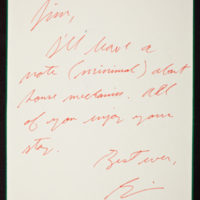 Jim,
I'll leave a
note (minimal) about
house mechanics. All
of you enjoy your
stay.
Best ever,